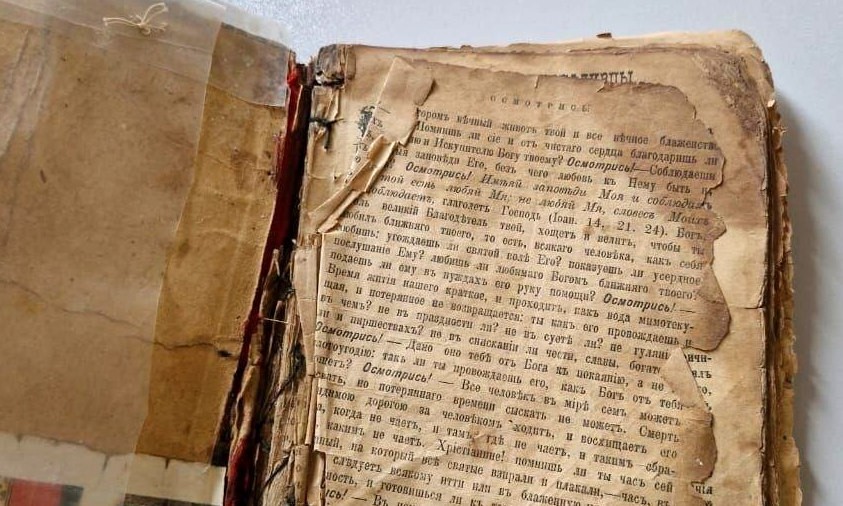 ОСМОТРИСЬ!
вѣчный животъ твой и все вѣчное блаженств
Помнишь ли сіе и отъ чистаго сердца благодаришь ли
ю и Искупителю Богу твоему? Осмотрись! — Соблюдаеши
заповѣда Его, безъ чего любовь къ Нему быть н
Осмотрись! Имѣяй заповѣди Моя и соблюдаяй
той есть любяй Мя: не любяй Мя, словесъ Моихъ
соблюдаетъ, глаголетъ Господь (Іоан. 14, 21. 24). Богъ,
великій Благодѣтель твой, хощетъ и велитъ, чтобы ты
любилъ ближняго твоего, то есть, всякаго человѣка, какъ себя
любишь; угождаешь ли святой волѣ Его? показуешь ли усердное
послушаніе Ему? любишь ли любимаго Богомъ ближняго твоего?
подаешь ли ему въ нуждахъ его руку помощи? Осмотрись! —
Время житія нашего краткое, и проходитъ, какъ вода мимотеку-
щая, и потерянное не возвращается: ты какъ его провождаешь и
въ чемъ? не въ праздности ли? не въ суетѣ ли? не гуляні
и пиршествахъ? не въ снисканіи ли чести, славы, богат
Осмотрись! — Дано оно тебѣ отъ Бога къ покаянію, а не
лотоугодію: такъ ли ты провождаешь его, какъ Богъ отъ тебя
ощетъ? Осмотрись! — Все человѣкъ въ мірѣ семъ можетъ
но потеряннаго времени сыскать не можетъ. Смерть
димою дорогою за человѣкомъ ходитъ, и восхищаетъ его
когда не чаетъ, и тамъ, гдѣ не чаетъ, и такимъ обра-
какимъ не чаетъ. Христіанине! помнишь ли ты часъ сей
на который всѣ святые взирали и плакали,—часъ, въ
слѣдуетъ всякому итти или въ блаженную
ность, и готовишься ли къ
ись! — Въ